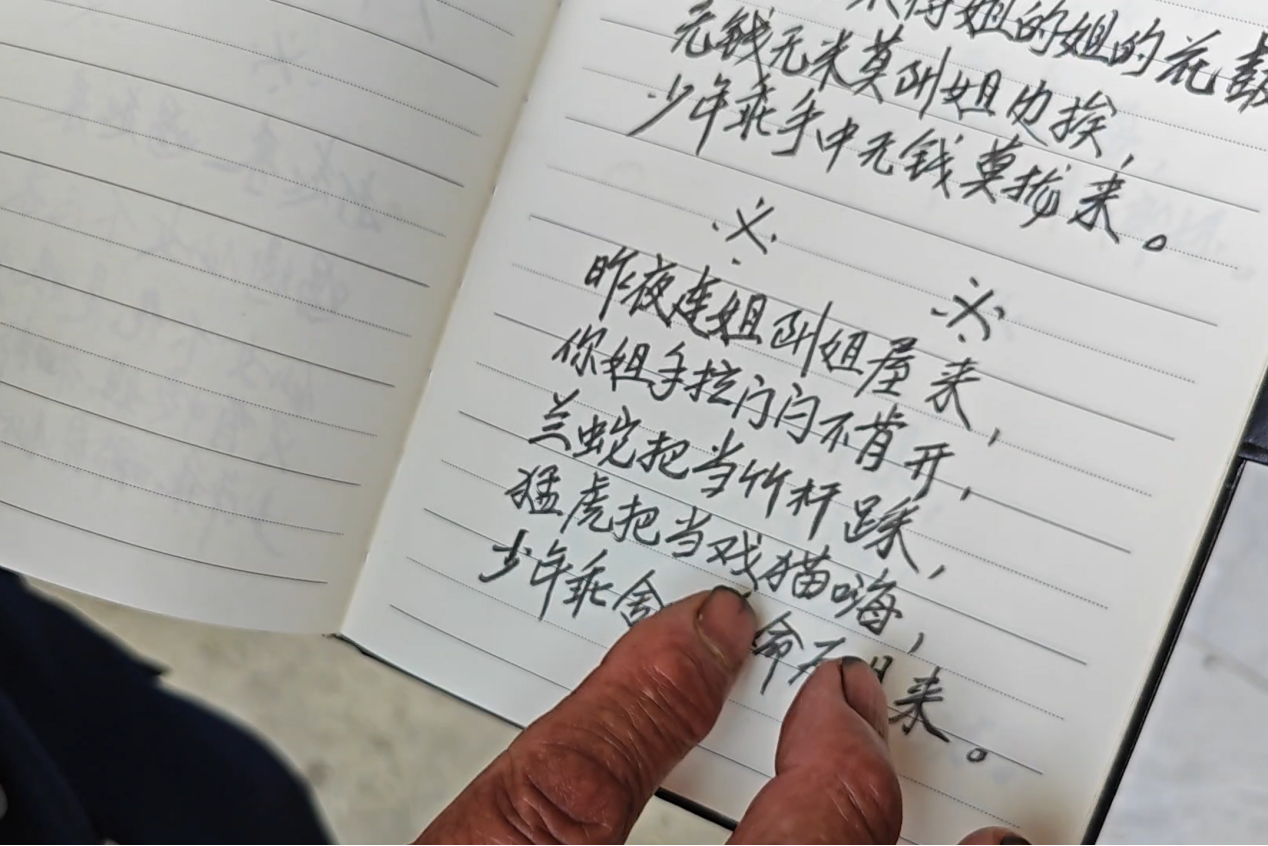 得姐的姐的花
无钱无米莫叫姐边挨，
少年乖手中无钱莫拢来。
※ ※
昨夜连姐叫姐屋来，
你姐手拉门闩不肯开，
兰蛇把当竹杆踩，
猛虎把当戏猫嗨，
少年乖舍 命 来。